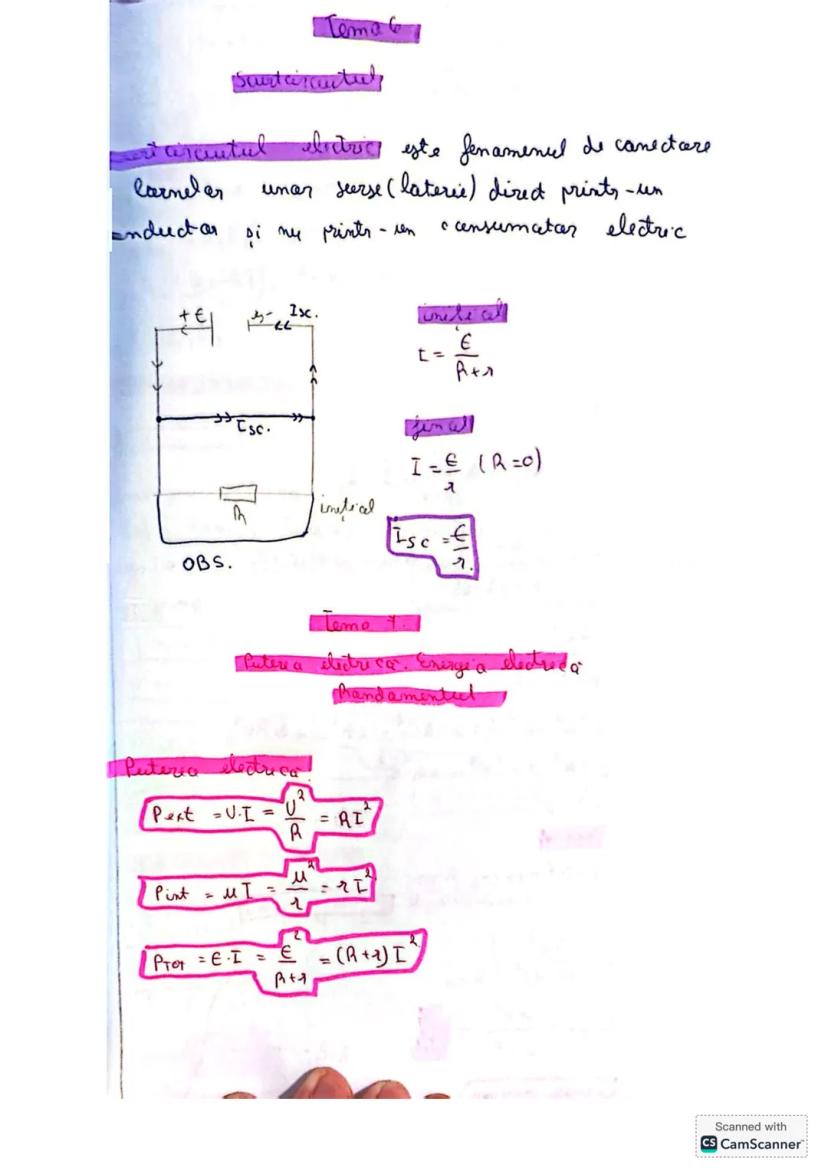 Tema 6
Scurtcircuitul
Scurtcircuitul electric este fenomenul de conectare
bornelor unor surse (baterii) direct printr-un
conductor și nu printr-un consumator electric
+ E r - Isc.
inițial
I = E/(R+r)
Isc.
final
I = E/r (R=0)
R inițial
Isc = E/r.
OBS.
Tema 7.
Puterea electrică. Energia electrică
Randamentul
Puterea electrică
Pext = U·I = U²/R = RI²
Pint = uI = u²/r = rI²
PTOT = E·I = E²/(R+r) = (R+r)I²
Scanned with
CS CamScanner